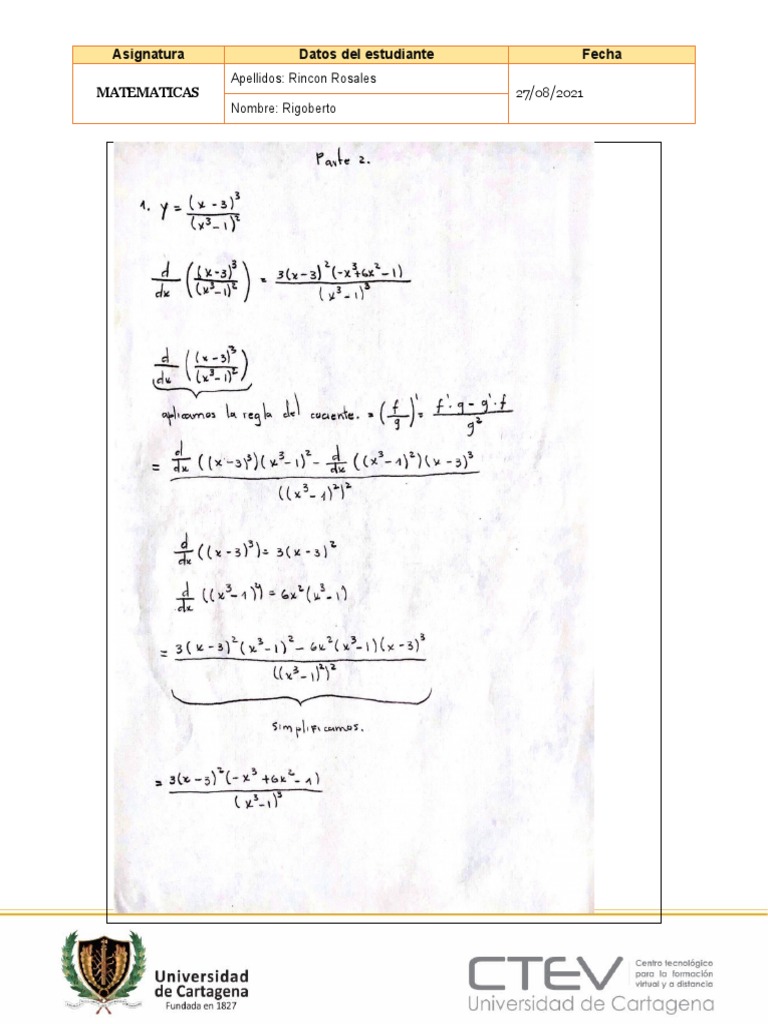 Asignatura Datos del estudiante Fecha
MATEMATICAS Apellidos: Rincon Rosales 27/08/2021
Nombre: Rigoberto
Parte 2.
1. y = (x-3)^3/(x^3-1)^2
d/dx ((x-3)^3/(x^3-1)^2) = 3(x-3)^2(-x^3+6x^2-1)/(x^3-1)^3
d/dx ((x-3)^3/(x^3-1)^2)
aplicamos la regla del cuciente. = (f/g)' = f'·g - g'·f/g^2
= d/dx((x-3)^3)(x^3-1)^2 - d/dx((x^3-1)^2)(x-3)^3/((x^3-1)^2)^2
d/dx((x-3)^3) = 3(x-3)^2
d/dx((x^3-1)^2) = 6x^2(x^3-1)
= 3(x-3)^2(x^3-1)^2 - 6x^2(x^3-1)(x-3)^3/((x^3-1)^2)^2
Simplificamos.
= 3(x-3)^2(-x^3+6x^2-1)/(x^3-1)^3
Universidad
de Cartagena
Fundada en 1827
CTEV
Centro tecnológico
para la formación
virtual y a distancia
Universidad de Cartagena